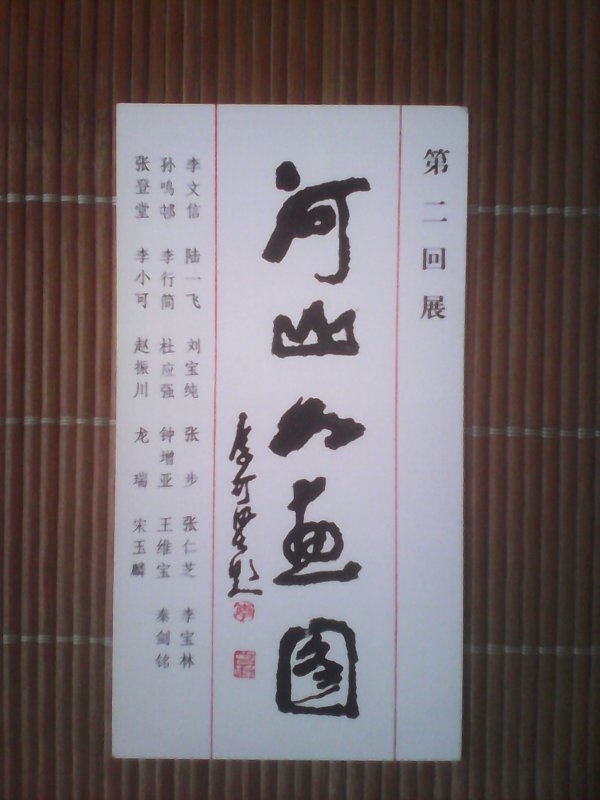 第二回展
河山如画图
李可染题
李文信 陆一飞 刘宝纯 张步 张仁芝 李宝林
孙鸣邨 李行简 杜应强 钟增亚 王维宝 秦剑铭
张登堂 李小可 赵振川 龙瑞 宋玉麟